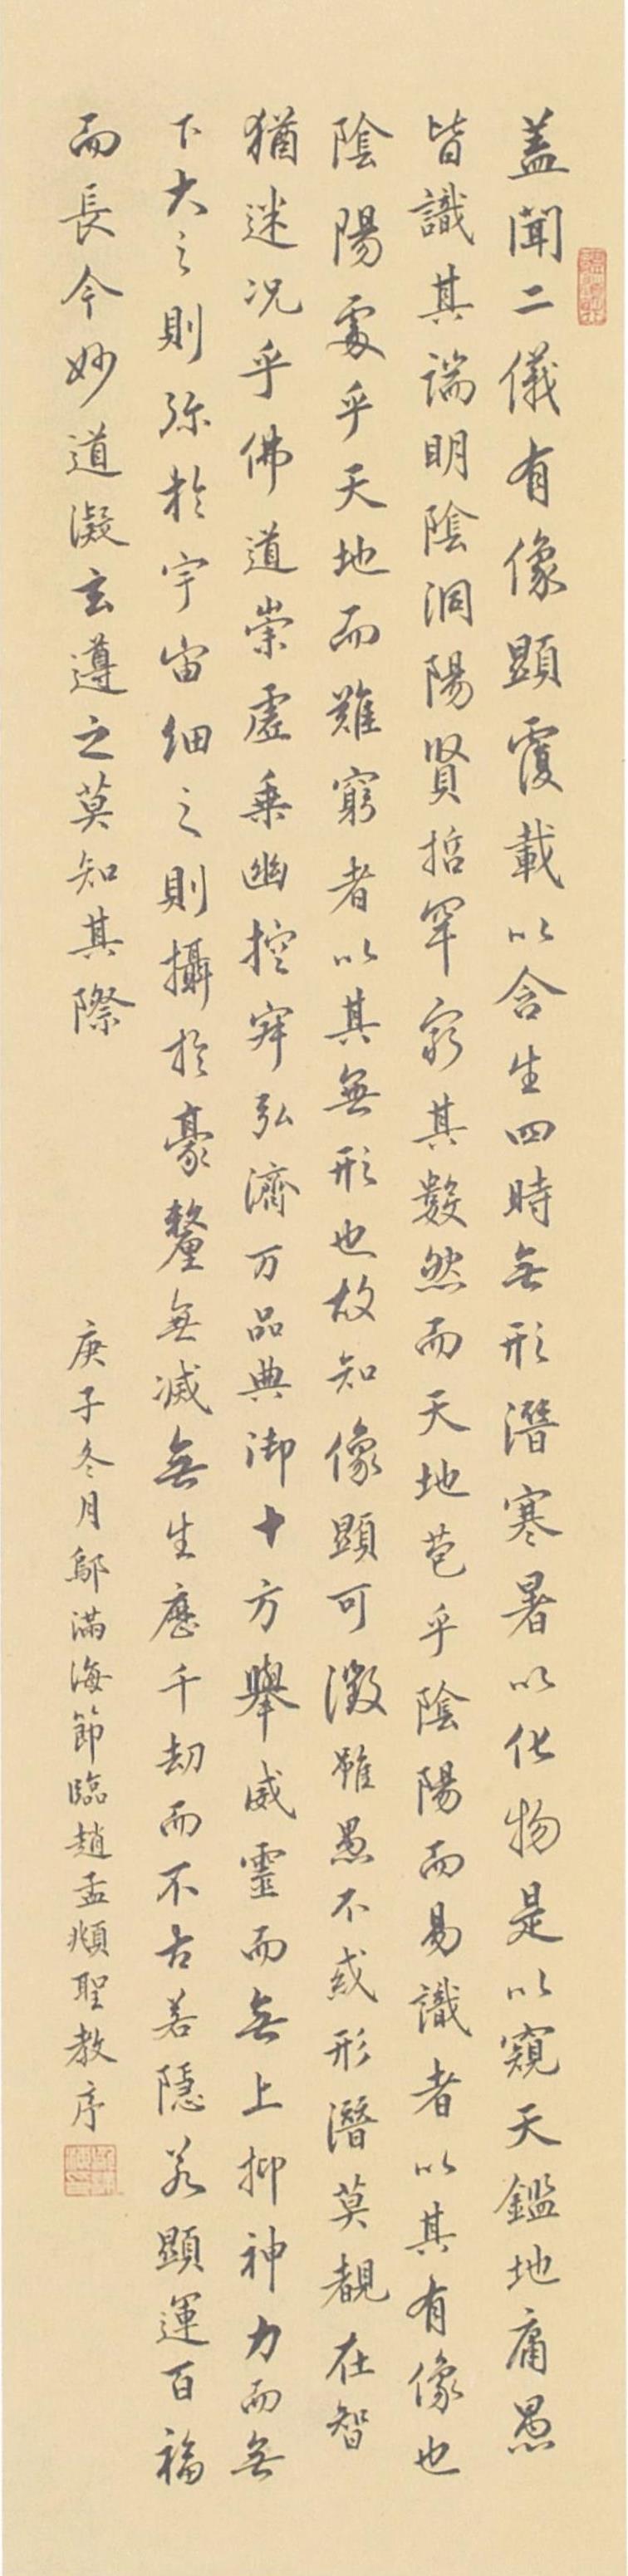 蓋聞二儀有像顯覆載以含生四時無形潛寒暑以化物是以窺天鑑地庸愚
皆識其端明陰洞陽賢哲罕窮其數然而天地苞乎陰陽而易識者以其有像也
陰陽處乎天地而難窮者以其無形也故知像顯可徵雖愚不惑形潛莫覩在智
猶迷况乎佛道崇虛乗幽控寂弘濟万品典御十方舉威靈而無上抑神力而無
下大之則弥於宇宙細之則攝於豪釐無滅無生歷千劫而不古若隱若顯運百福
而長今妙道凝玄遵之莫知其際
庚子冬月鄔滿海節臨趙孟頫聖教序